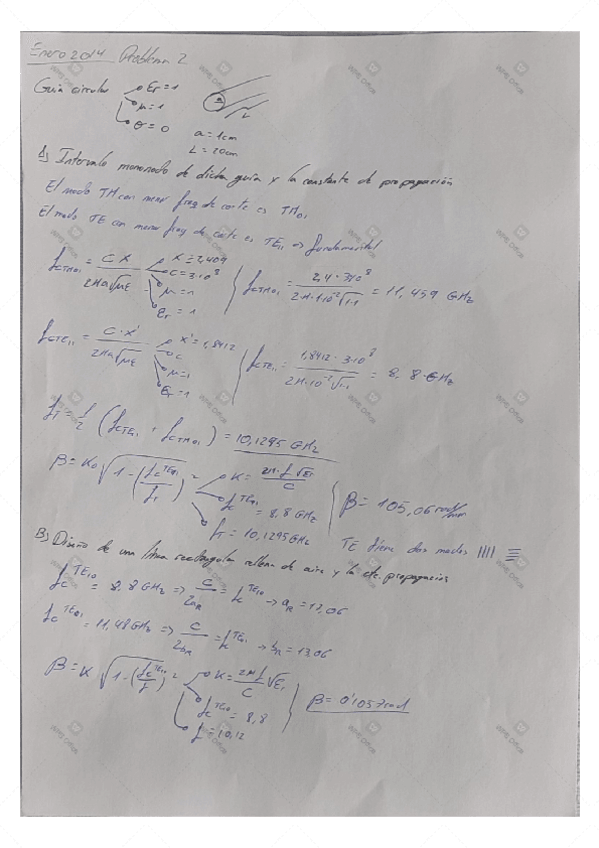 Enero 2014 Problema 2
Guia circular εr = 1
μ = 1
σ = 0
a = 1cm
L = 20cm
A) Intervalo monomodo de dicha guia y la constante de propagación
El modo TM con menor freq de corte es TM01
El modo TE con menor freq de corte es TE11 => fundamental
fcTM01 = c X / 2πa√με X = 2,409 c = 3·10^8 μ = 1 εr = 1 fcTM01 = 2,4 · 3·10^8 / 2·π·1·10^-2 √1·1 = 11,459 GHz
fcTE11 = c · X' / 2πa√με X' = 1,8412 c μ = 1 εr = 1 fcTE11 = 1,8412 · 3·10^8 / 2π·10^-2 √1·1 = 8,8 GHz
fT = 1/2 (fcTE11 + fcTM01) = 10,1295 GHz
β = K0 √1 - (fcTE11 / fT)^2 K = 2π·f √εr / c fcTE11 = 8,8 GHz fT = 10,1295 GHz β = 105,06 rad/m
TE tiene dos modos
B) Diseño de una línea rectangular rellena de aire y la cte. propagación
fcTE10 = 8,8 GHz => c / 2aR = fcTE10 -> aR = 17,06
fcTE01 = 11,48 GHz => c / 2bR = fcTE01 -> bR = 13,06
β = K √1 - (fcTE10 / f)^2 K = 2πf / c √εr fcTE10 = 8,8 f = 10,12 β = 0'1057 rad